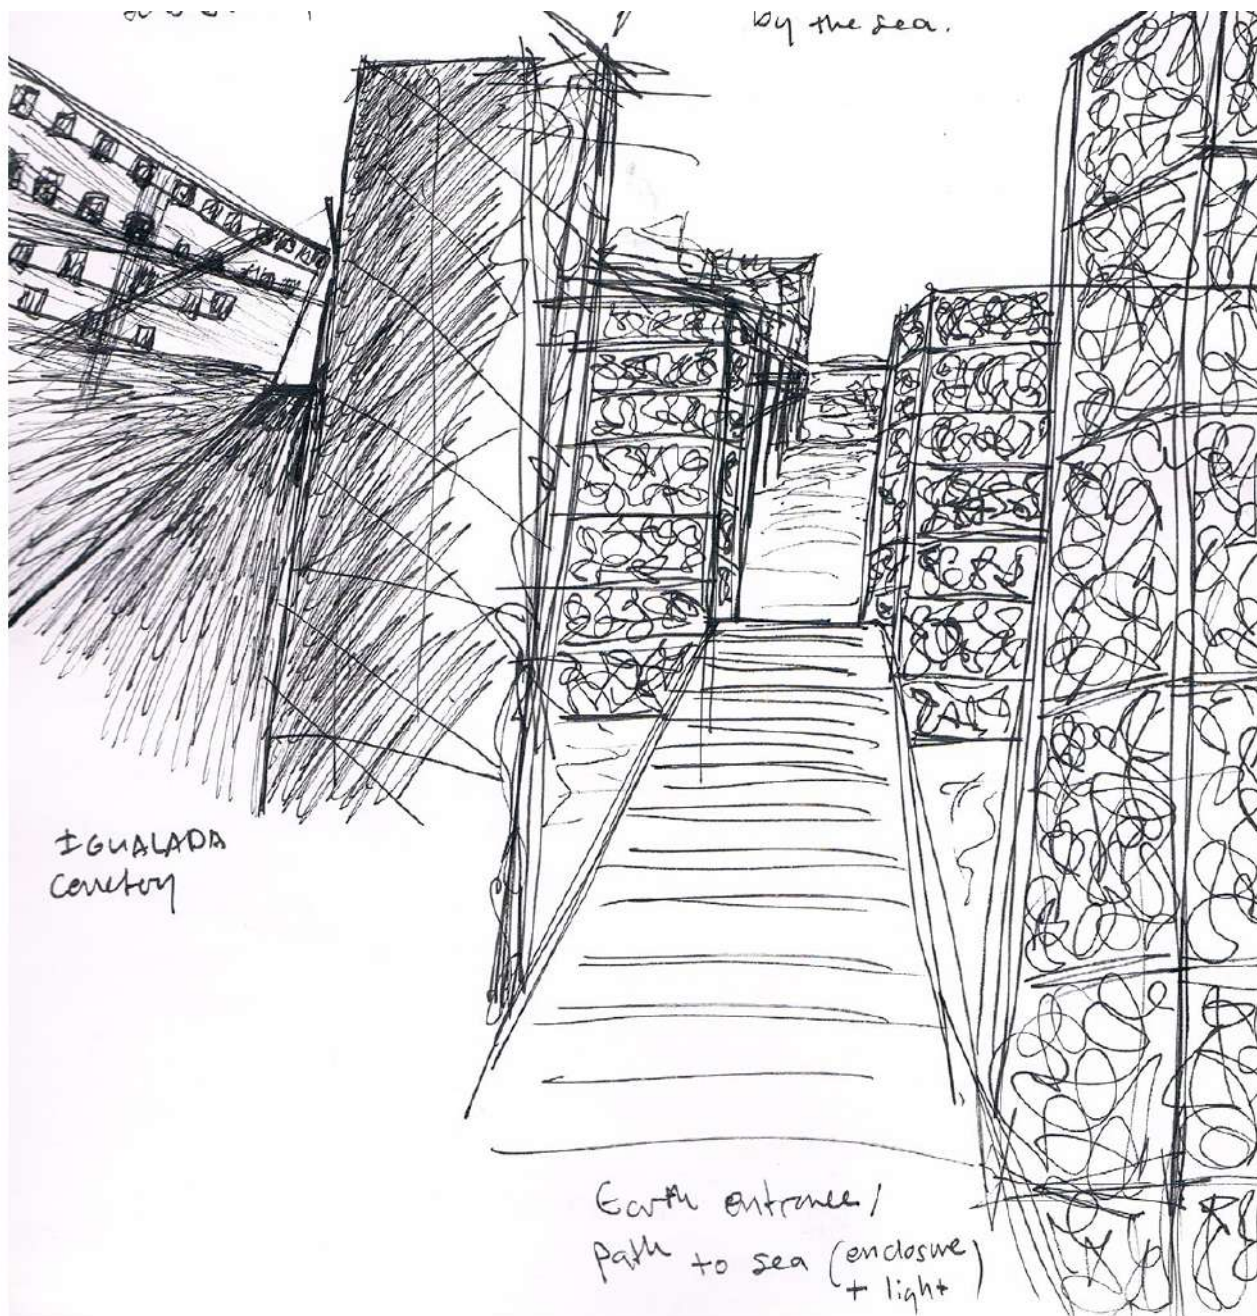 by the sea.
IGUALADA
Cemetery
Earth entrance /
path to sea (enclosure
+ light)